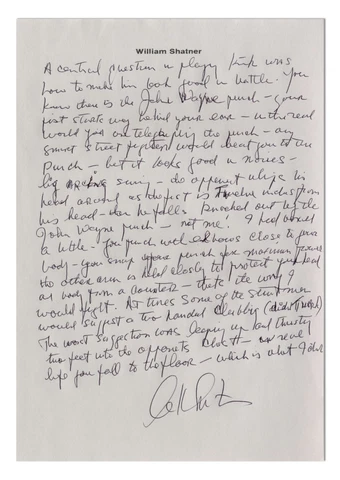 William Shatner
A central question in playing Kirk was
how to make him look good in battle. You
know there is the John Wayne punch – your
first starts way behind your ear – in the real
world you are telegraphing the punch – any
smart street fighter would beat you to the
punch – but it looks good in movies –
big arcing swing – the opponent whips his
head around as the fist is twelve inches from
his head – then he falls knocked out by the
John Wayne punch – not me! I had boxed
a little – You punch with elbows close to your
body – you snap your punch for maximum
the other arm is held close by to protect your head
or body from a counter – that's the way I
would fight. At times some of the stuntmen
would suggest a two handed clubbing
The worst suggestion was leaping up and thrusting
two feet into the opponents chest – in real
life you fall to the floor – which is what I did